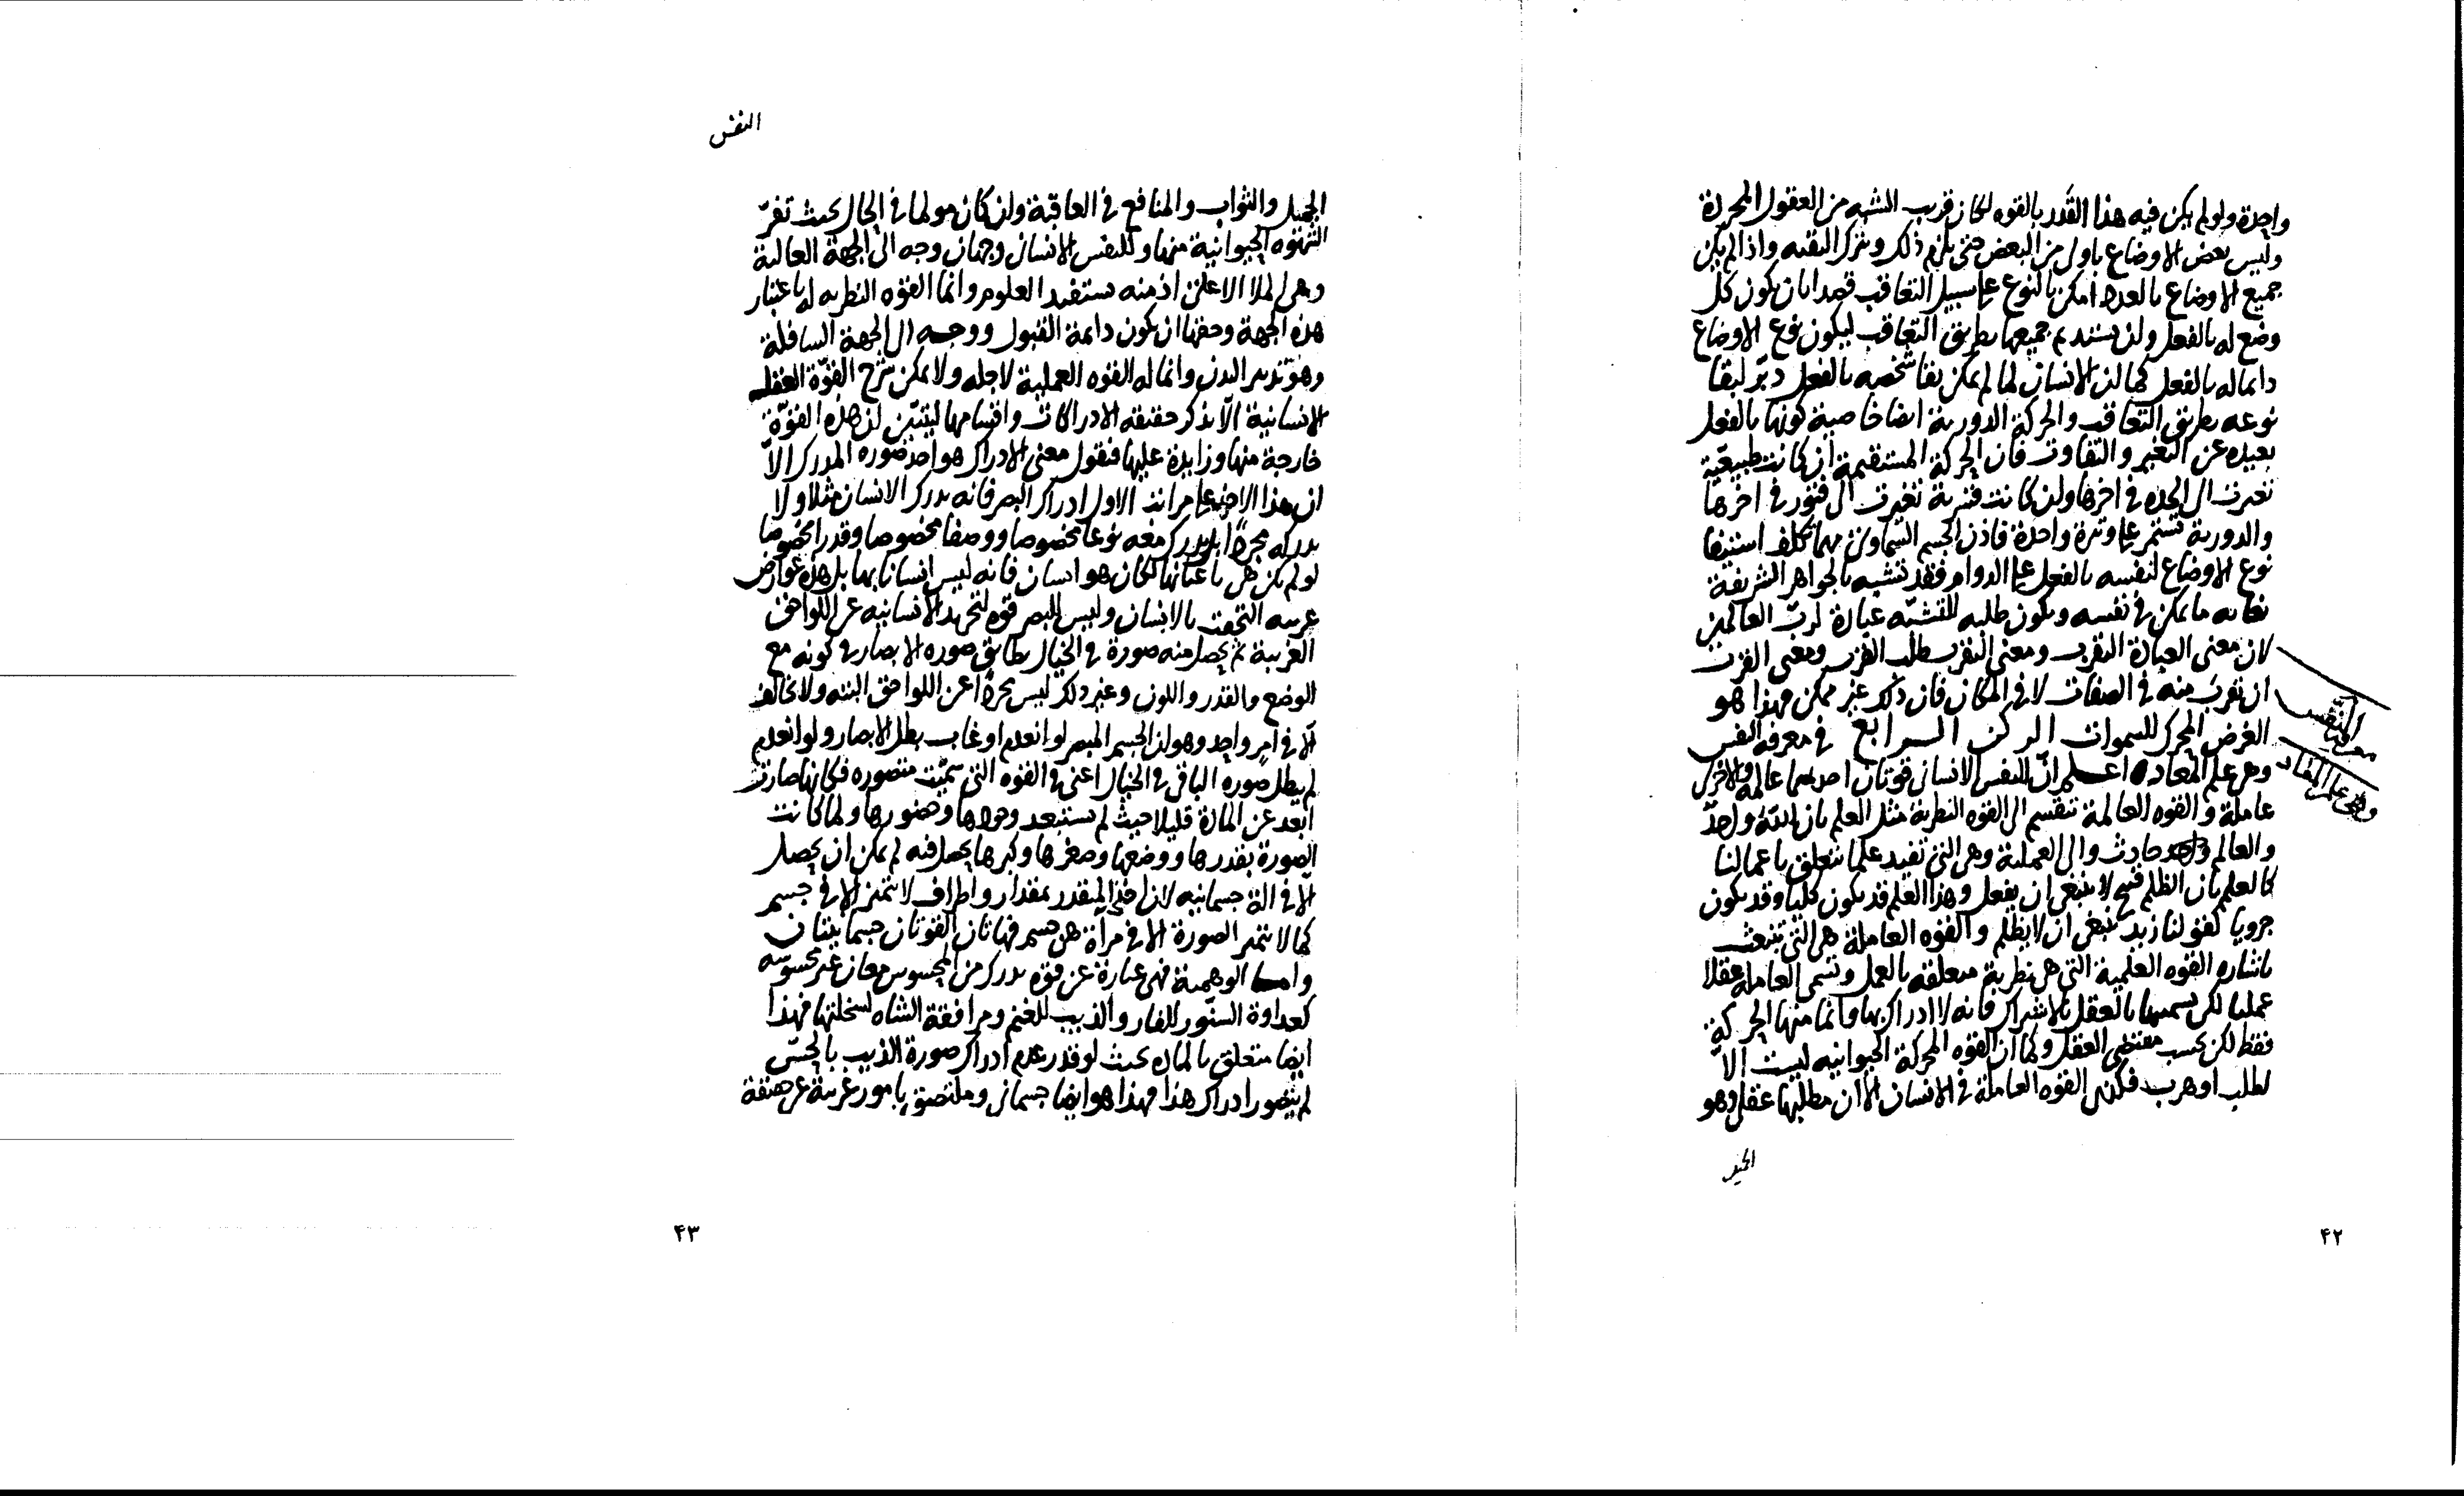 واحدة ولو لم يكن فيه هذا القدر بالقوه لكان قريب الشبه من العقول المجردة
وليس بعض الاوضاع باولى من البعض حتى يلزم ذلك ويترك البقيه واذا لم يكن
جميع الاوضاع بالعدد امكن بالنوع على سبيل التعاقب قصد ان يكون كل
وضع له بالفعل وان يستديم جميعها بطريق التعاقب ليكون نوع الاوضاع
دائما له بالفعل كما ان الانسان لما لم يمكن بقا شخصه بالفعل دبر لبقا
نوعه بطريق التعاقب والحركة الدورية ايضا خاصية كونها بالفعل
بعيده عن التغير والتفاوت فان الحركة المستقيمة ان كانت طبيعيّة
تغيرت الى الحده في اخرها وان كانت قسرية تغيرت الى فتور في اخرها
والدورية تستمر على وتيرة واحدة فاذن الجسم السماوى مهما تكلف استبقا
نوع الاوضاع لنفسه بالفعل على الدوام فقد تشبه بالجواهر الشريفة
بغايه ما يمكن في نفسه ويكون طلبه للتشبّه عبادة لربّ العالمين
لان معنى العبادة التقرب ومعنى التقرب طلب القرب ومعنى القرب
ان يقرب منه في الصفات لا في المكان فان ذلك غير ممكن فهذا هو
الغرض المحرك للسموات الركن الرابع في معرفة النفس
وهى علم المعاد ٥ اعلم انّ للنفس الانسانى قوتان احديهما عالمة والاخرى
عاملة والقوه العالمة تنقسم الى القوه النظرية مثل العلم بان الله واحدٌ
والعالم حادث والى العملية وهى التى تفيد علما يتعلق باعمالنا
كالعلم بان الظلم قبيح لا ينبغى ان يفعل وهذا العلم قد يكون كليا وقد يكون
جزويا كقولنا زيد ينبغى ان لا يظلم والقوه العاملة هى التى تنبعث
باشاره القوه العلمية التى هى نظرية متعلقه بالعمل وتسمى العاملة عقلا
عمليا لكن تسميتها بالعقل بالاشتراك فانه لا ادراك بها وانما منها الحركة
فقط لكن بحسب مقتضى العقل وكما ان القوه المحركة الحيوانيه ليست الاّ
لطلب او هرب فكذى القوه العاملة في الانسان الا ان مطلبها عقلى وهو
الخير
النّفس
معرفة
وهى علم المعاد
۴۲
النفس
الجميل والثواب والمنافع في العاقبة وان كان مولما في الحال بحيث تفرّ
الشهوه الحيوانية منها وللنفس الانسانى وجهان وجه الى الجهة العالية
وهى الملا الاعلى اذ منه يستفيد العلوم وانما القوّه النظريه له باعتبار
هذه الجهة وحقها ان يكون دائمة القبول ووجه الى الجهة السافلة
وهو تدبير البدن وانما له القوه العملية لاجله ولا يمكن شرح القوّة العقليه
الانسانية الّا بذكر حقيقه الادراكات واقسامها ليتبيّن ان هذه القوّة
خارجة منها وزايدة عليها فنقول معنى الادراك هو اخذ صوره المدرك الاّ
ان هذا الاخذ على مراتب الاول ادراك البصر فانه يدرك الانسان مثلا ولا
يدركه مجردًا بل يدرك معه نوعا مخصوصا ووصفا مخصوصا وقدرا مخصوصا
لو لم يكن هى باعيانها لكان هو انسان فانه ليس انسانا بها بل هذه عوارض
غريبه التحقت بالانسان وليس للبصر قوه تجريد الانسانيه عن اللواحق
الغريبة ثم يحصل منه صورة في الخيال يطابق صوره الابصار في كونه مع
الوضع والقدر واللون وغير ذلك ليس مجردا عن اللواحق البته ولا تخالف
الّا في امر واحد وهو ان الجسم المبصر لو انعدم او غاب بطل الابصار ولو انعدم
لم يبطل صوره الباقى في الخيال اعنى في القوه التى سمّيت متصوره فكانها صارت
ابعد عن المادة قليلا حيث لم تستبعد وجودها وحضورها ولما كانت
الصورة بقدرها ووضعها وصغرها وكبرها يحصل فيه لم يمكن ان يحصل
الّا في الة جسمانيه لان اخذ المتقدر بمقدار واطراف لا يتميز الا في جسم
كما لا يتميز الصورة الا في مرآة هى جسم فهاتان القوتان جسمانيتان
واما الوهمية فهى عبارة عن قوه يدرك من المحسوس معانى غير محسوسه
كعداوة السنّور للفار والذيب للغنم ومرافقة الشاه لسخلتها فهذا
ايضا متعلق بالماده بحيث لو قدر عدم ادراك صورة الذيب بالحسّ
لم يتصور ادراك هذا فهذا هو ايضا جسمانى وملتصق بامور غريبة عن حقيقة
۴۳